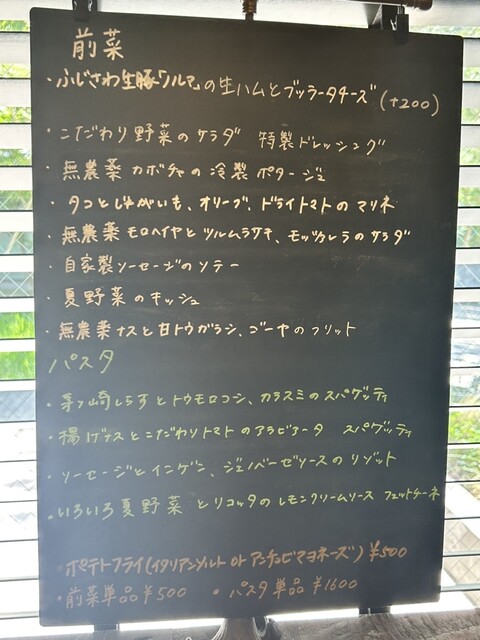 前菜
・ふじさわ生豚ワルマ。の生ハムとブッラータチーズ (+200)
・こだわり野菜のサラダ 特製ドレッシング
・無農薬カボチャの冷製ポタージュ
・タコとじゃがいも、オリーブ、ドライトマトのマリネ
・無農薬モロヘイヤとツルムラサキ、モッツァレラのサラダ
・自家製ソーセージのソテー
・夏野菜のキッシュ
・無農薬ナスと甘トウガラシ、ゴーヤのフリット
パスタ
・茅ヶ崎しらすとトウモロコシ、カラスミのスパゲッティ
・揚げナスとこだわりトマトのアラビアータ スパゲッティ
・ソーセージとインゲン、ジェノベーゼソースのリゾット
・いろいろ夏野菜とリコッタのレモンクリームソース フェットチーネ
・ポテトフライ(イタリアンソルト or アンチョビマヨネーズ) ¥500
・前菜単品¥500 ・パスタ単品¥1600